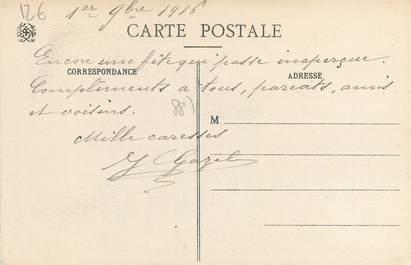 126
1er 9bre 1916
CARTE POSTALE
Encore une fête qui passe inaperçue.
CORRESPONDANCE
ADRESSE
Compliments à tous, parents, amis
et voisins.
M
Mille caresses